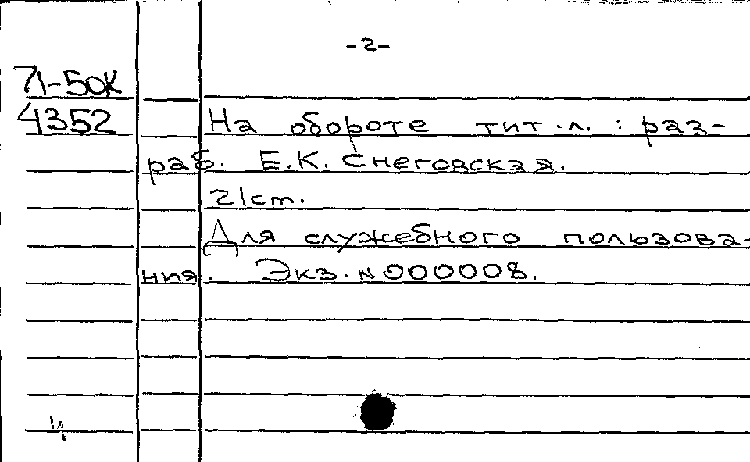 -2-
71-50К
4352
На обороте тит.л.: раз-
раб. Е.К. Снеговская.
21cm.
Для служебного пользова-
ния. Экз. № 000008.